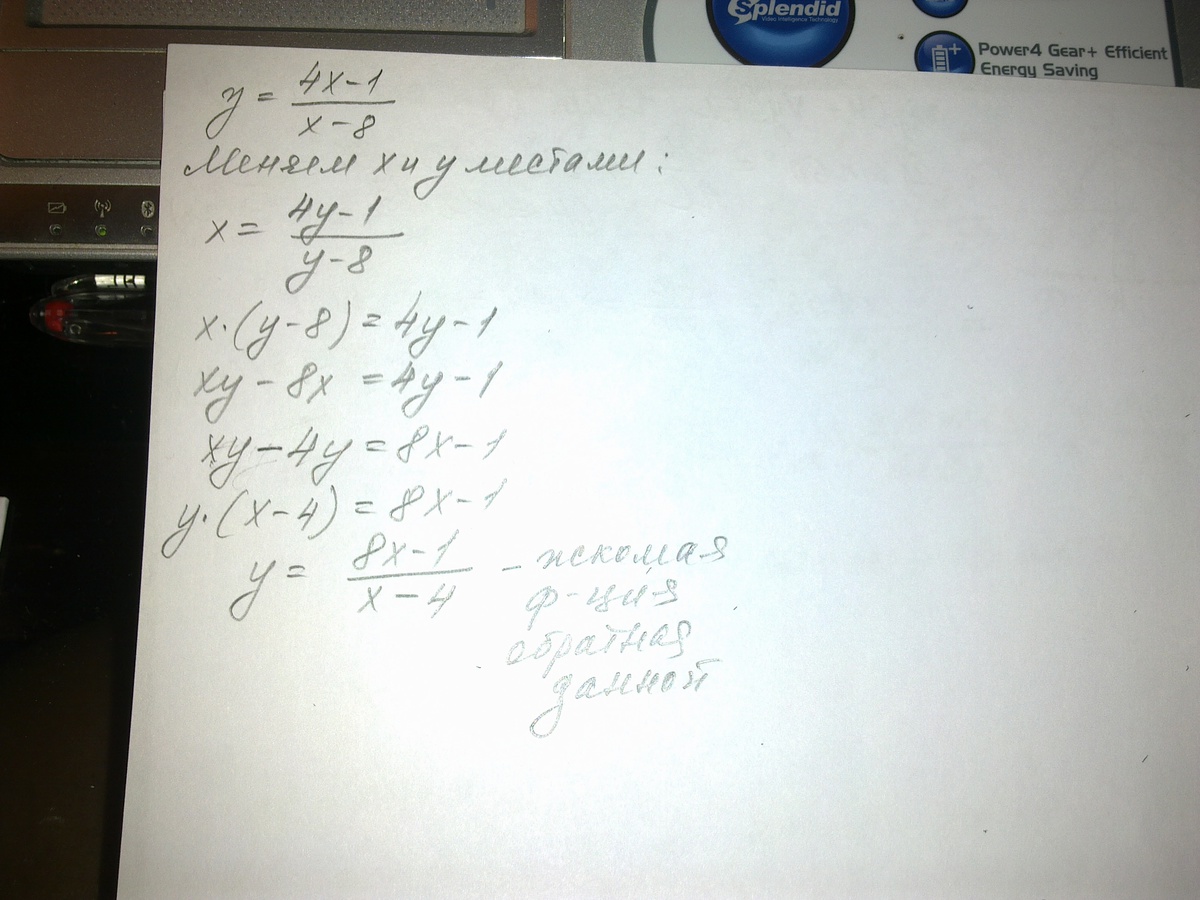 Splendid
Video Intelligence Technology
Power4 Gear+ Efficient
Energy Saving
y = 4x-1 / x-8
Меняем x и y местами:
x = 4y-1 / y-8
x·(y-8) = 4y-1
xy - 8x = 4y-1
xy - 4y = 8x-1
y·(x-4) = 8x-1
y = 8x-1 / x-4 - искомая
ф-ция
обратная
данной